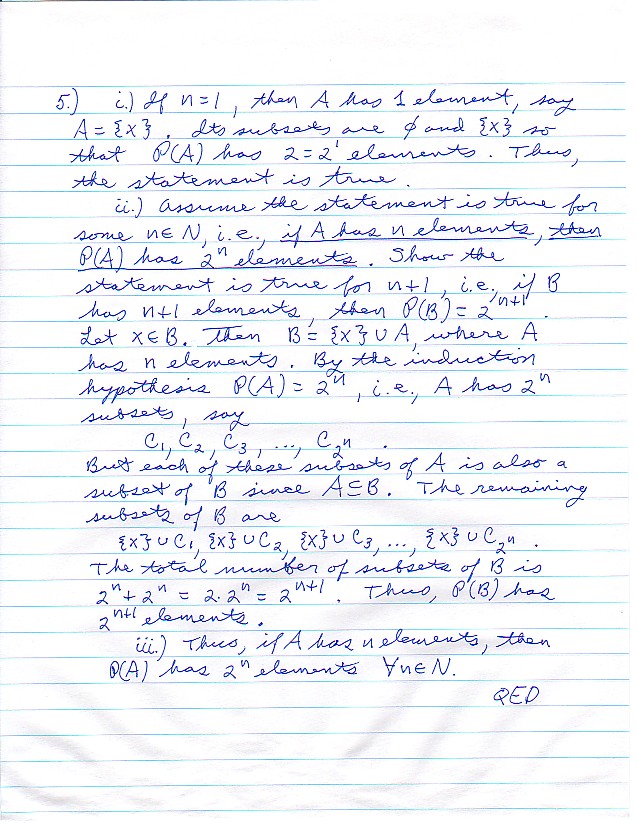 5.) i.) If n=1, then A has 1 element, say
A = {x}. Its subsets are ϕ and {x} so
that P(A) has 2=2¹ elements. Thus,
the statement is true.
ii.) Assume the statement is true for
some n∈N, i.e., if A has n elements, then
P(A) has 2ⁿ elements. Show the
statement is true for n+1, i.e., if B
has n+1 elements, then P(B)= 2ⁿ⁺¹.
Let x∈B. Then B= {x}∪A, where A
has n elements. By the induction
hypothesis P(A)= 2ⁿ, i.e., A has 2ⁿ
subsets, say
C₁, C₂, C₃, ..., C₂ⁿ.
But each of these subsets of A is also a
subset of B since A⊆B. The remaining
subsets of B are
{x}∪C₁, {x}∪C₂, {x}∪C₃, ..., {x}∪C₂ⁿ.
The total number of subsets of B is
2ⁿ+2ⁿ = 2·2ⁿ = 2ⁿ⁺¹. Thus, P(B) has
2ⁿ⁺¹ elements.
iii.) Thus, if A has n elements, then
P(A) has 2ⁿ elements ∀n∈N.
QED